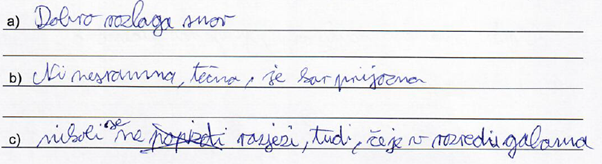 a) Dobro razlaga snov
b) Ni nesramna, tečna, je kar prijazna
c) nikoli se ne razjezi, tudi, če je v razredu galama